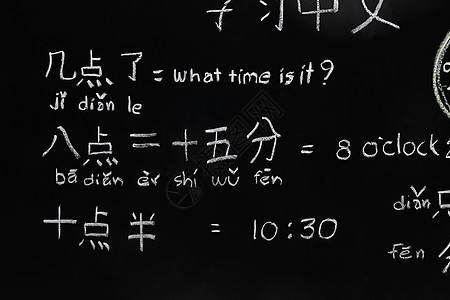 学习中文
几点了 = what time is it?
jǐ diǎn le
八点二十五分 = 8 o'clock 2
bā diǎn èr shí wǔ fēn
十点半 = 10:30
diǎn 点
fēn 分